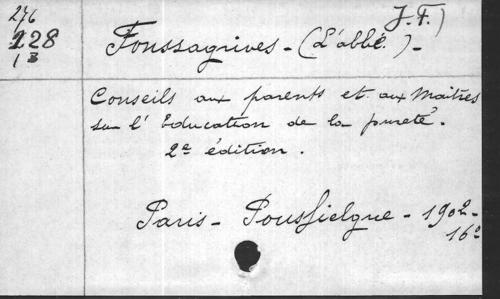 276
228
13
Fonssagrives - (L'abbé. J. F.) -
Conseils aux parents et aux Maîtres
sur l'Education de la pureté.
2e édition.
Paris - Poussielgue - 1902 -
16°